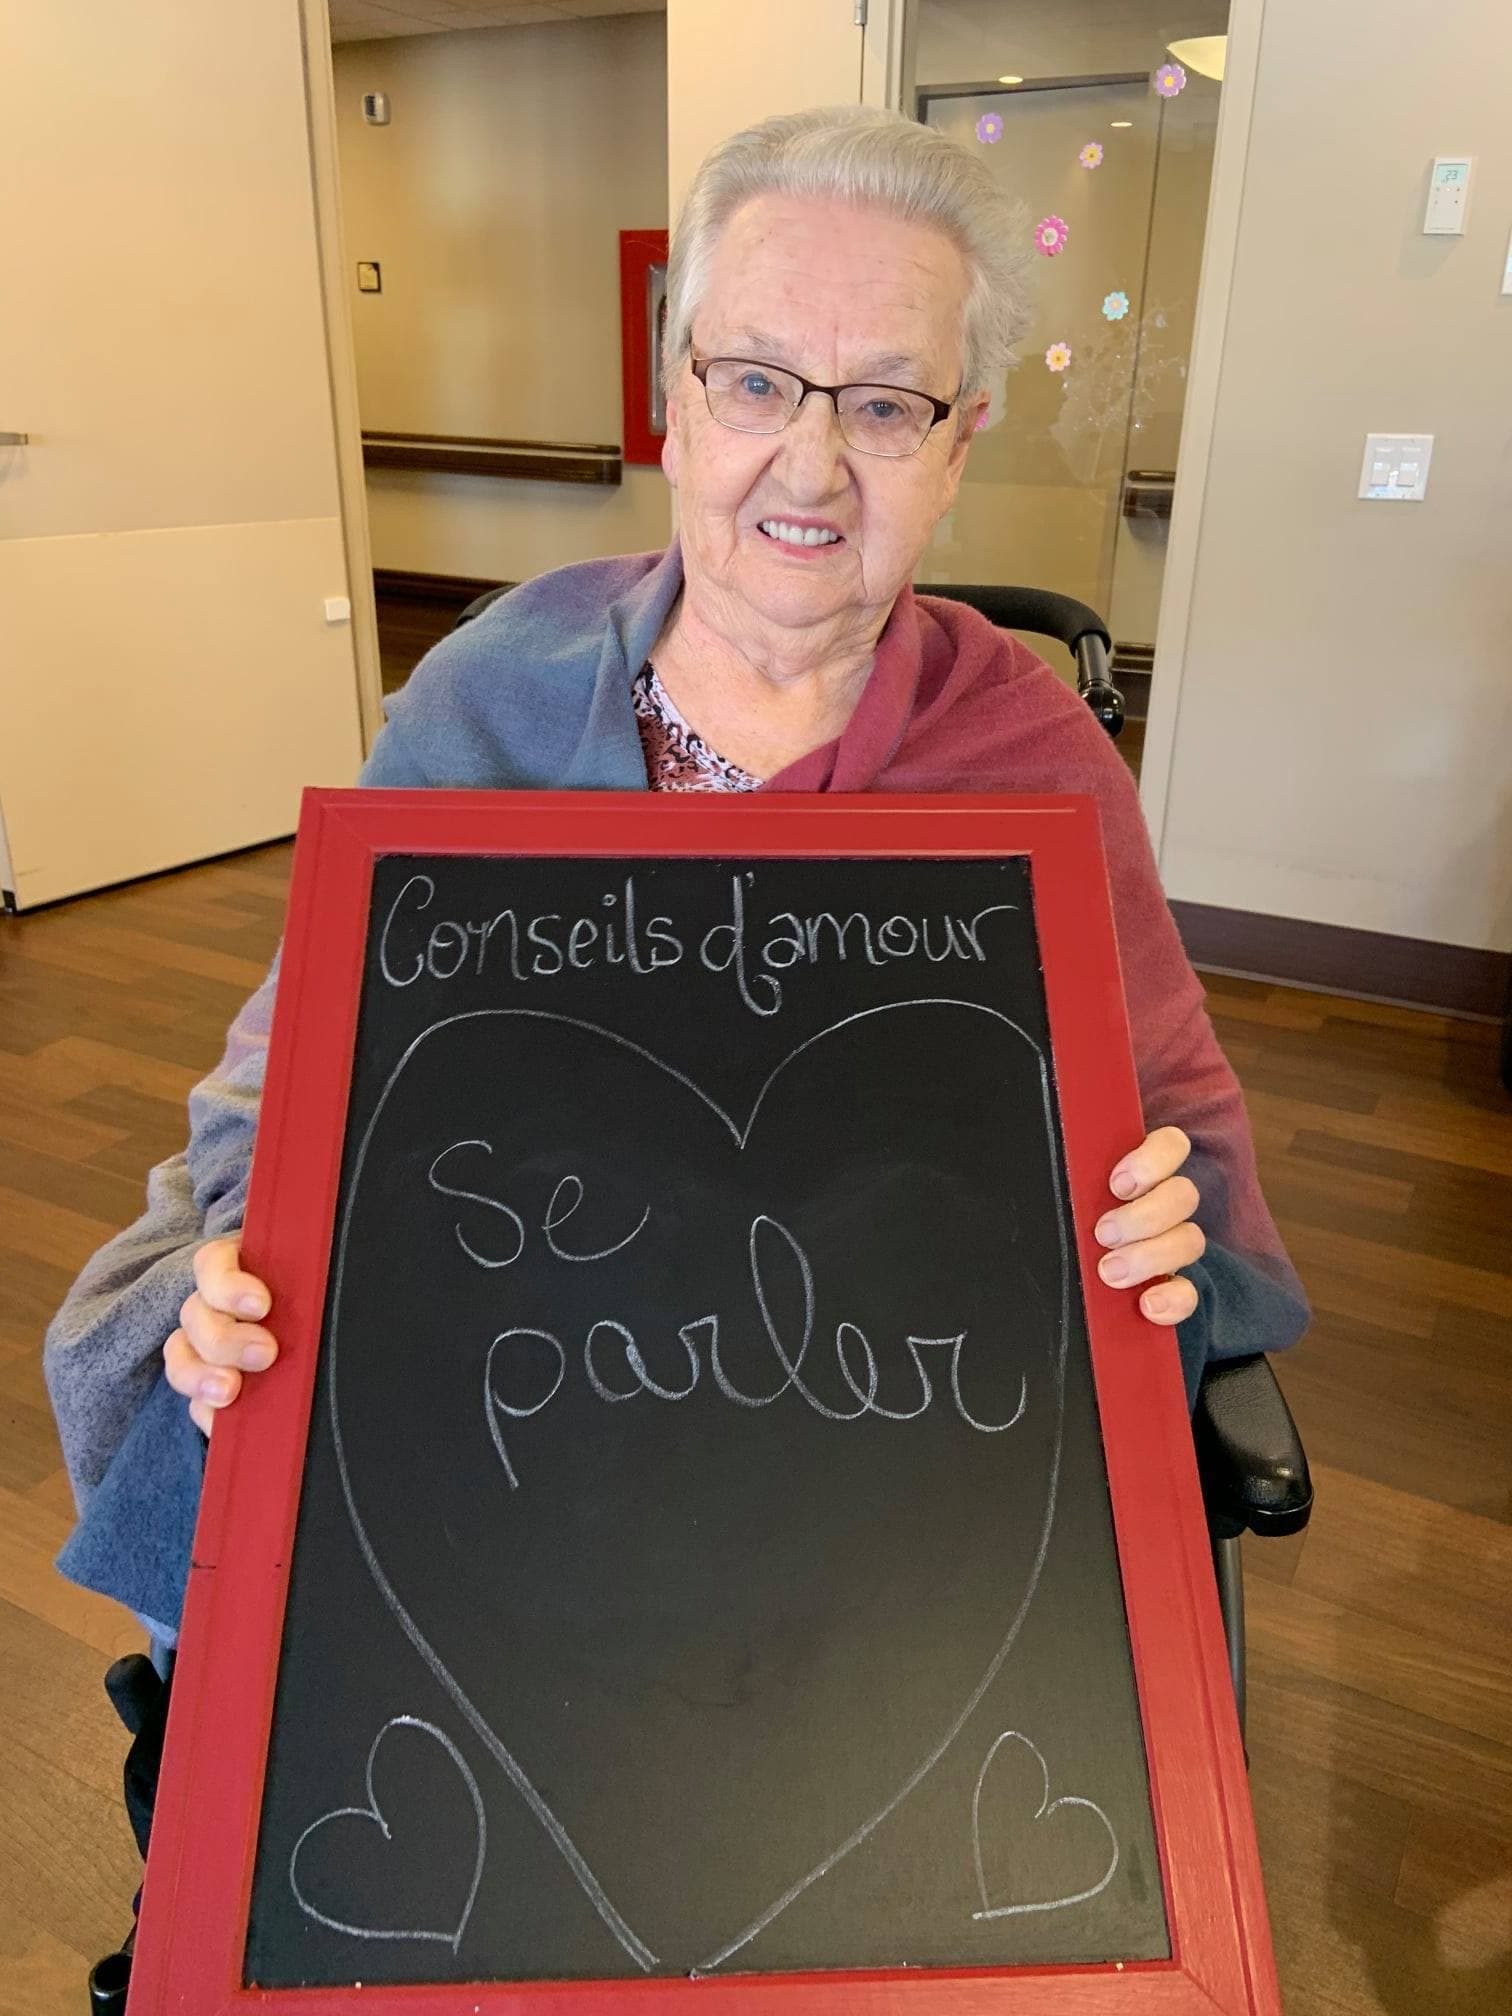 Conseils d'amour
Se
parler
23